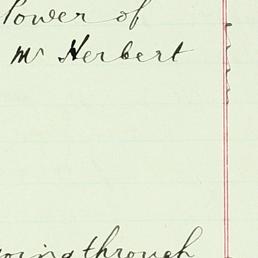 Power of
Mr Herbert
going through